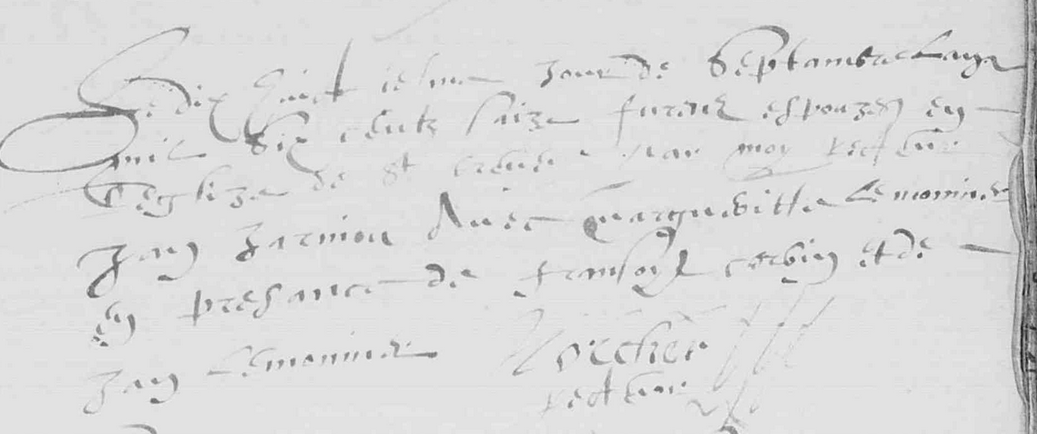 Le dix huict iesme jour de Septambre Lan
mil Six centz saize furent espouzes en
Leglize de st par moy recteur
Jan Jarniou Avec Margueritte Lemonnier
en presance de fransoys corbin et de
Jan Lemonnier Porcher
recteur